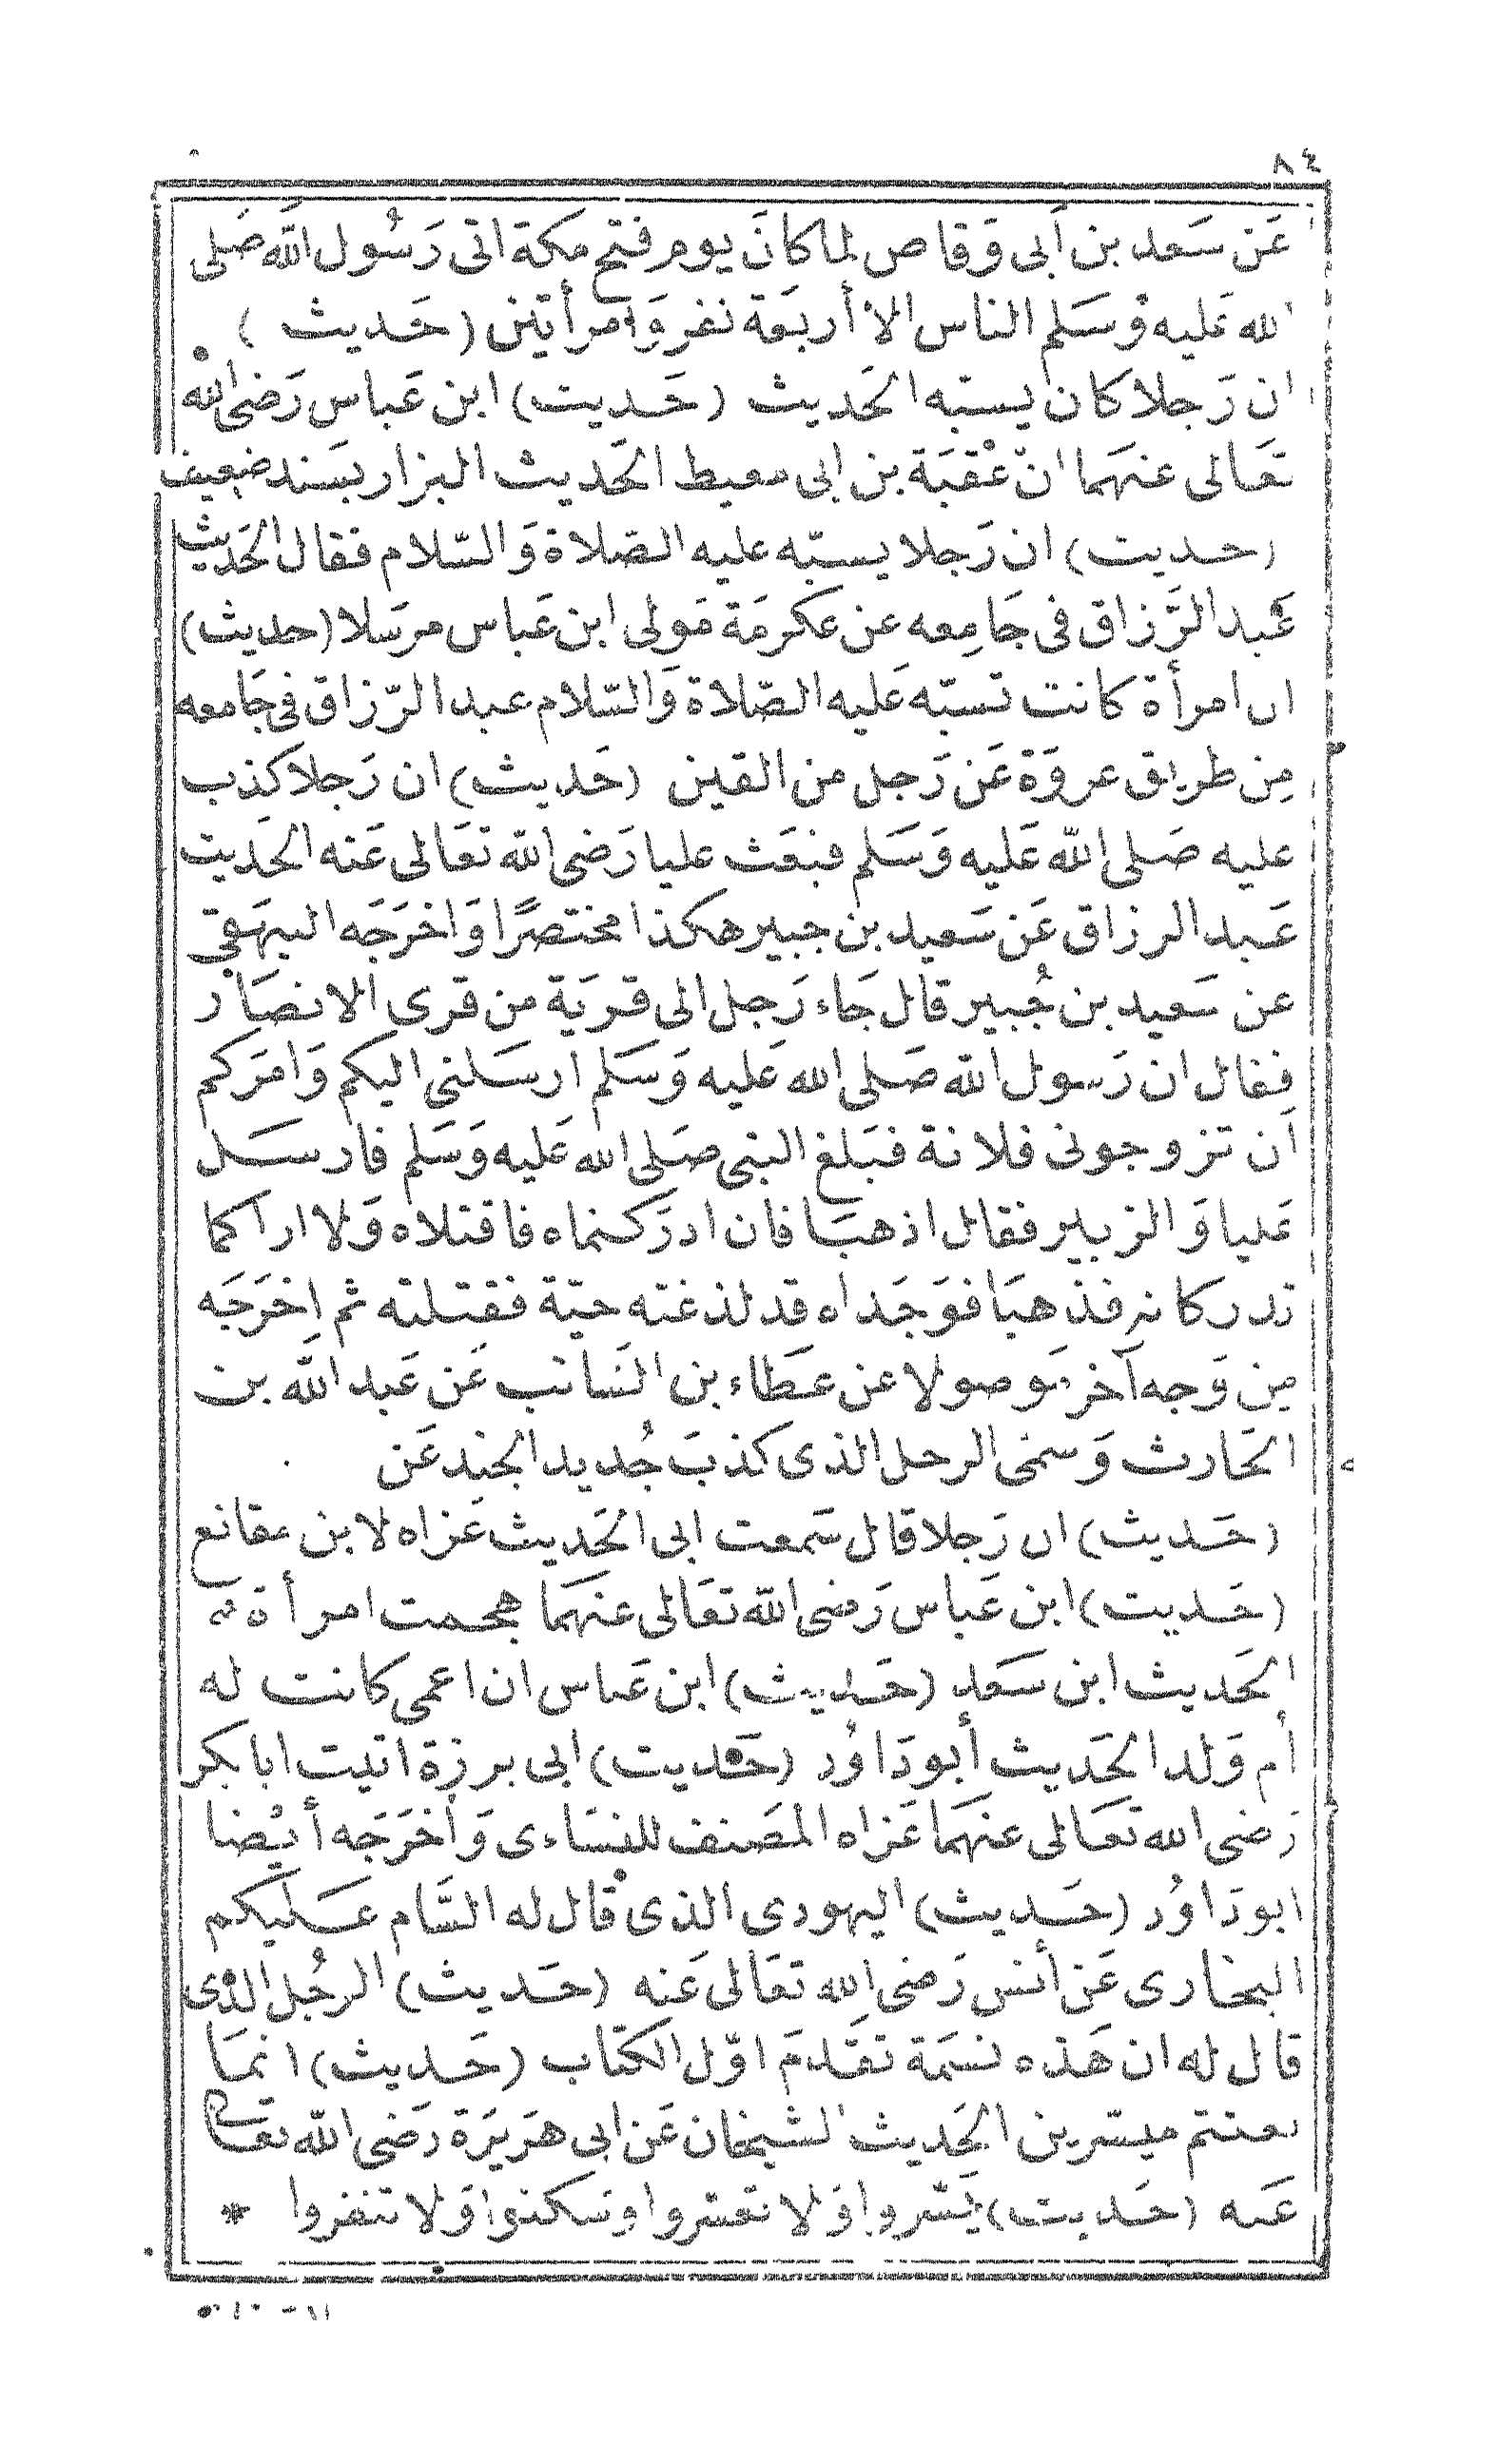 ٨٤
عَن سَعد بن أبى وَقاص لما كانَ يوم فتح مكة اتى رَسُول الله صَلى
الله عَليه وَسَلم الناس الا أربَعة نفر وَامرأتين (حَديث )
ان رَجلا كان يسبّه الحَديث (حَديث) ابن عَباس رَضى الله
تعَالى عنهَما انّ عُقبَة بن ابى معيط الحَديث البزار بسَند ضعيف
(حديث) ان رَجلا يسبّه عليه الصّلاة وَالسّلام فقال الحَديث
عَبد الرَّزاق فى جَامِعه عن عكرمَة مَولى ابن عَباس مرسَلا (حديث)
ان امرأة كانت تسبّه عَليه الصّلاة وَالسّلام عبد الرّزاق فى جَامعه
مِن طريق عروَة عَن رَجل من القين (حَديث) ان رَجلا كذب
عليه صَلى الله عَليه وَسَلم فبعَث عليا رَضى الله تعَالى عَنه الحَديث
عَبد الرزاق عَن سَعيد بن جبير هكذا مختصرًا وَاخرَجَه البيهَقى
عن سَعيد بن جُبير قال جَاء رَجل الى قريَة من قرى الانصَار
فقال ان رَسول الله صَلى الله عَليه وَسَلم ارسَلنى اليكم وَامَركم
أن تزوجونى فلانة فبَلغ النبى صَلى الله عَليه وَسَلم فارسَل
عَليا وَالزبير فقال اذهبَا فان ادرَكتماه فاقتلاه وَلا اراكما
تدركانه فذهبَا فوَجَداه قد لذغته حيّة فقتلته ثم اخرَجَه
مِن وَجه آخر موصولا عن عَطاء بن السَائب عَن عَبد الله بن
الحَارث وَسمى الرجل الذى كذبَ جُديد الجند عَن
(حَديث) ان رَجلا قال سَمعت ابى الحَديث عَزاه لابن مقانع
(حَديث) ابن عَباس رَضى الله تعَالى عنهَما هجمت امرأة
الحَديث ابن سَعد (حَديث) ابن عَباس ان اعمى كانت له
أم وَلد الحَديث أبو دَاوُد (حَديث) ابى برزة اتيت ابا بكر
رَضى الله تعَالى عنهَما عَزاه المصَنف للنسَاءى وَأخرَجَه أيضا
ابو دَاوُد (حَديث) اليهودى الذى قال له السَّام عَليكم
البخارى عَن أنس رَضى الله تعَالى عَنه (حَديث) الرجُل الذى
قال له ان هَذه نسمَة تقَدمَ اوّل الكتاب (حَديث) انمَا
بعثتم ميسّرين الحَديث الشيخان عَن ابى هرَيرَة رَضى الله تعَالى
عَنه (حَديث) يَسّروا وَلا تعسّروا وسَكنوا وَلا تنفروا *